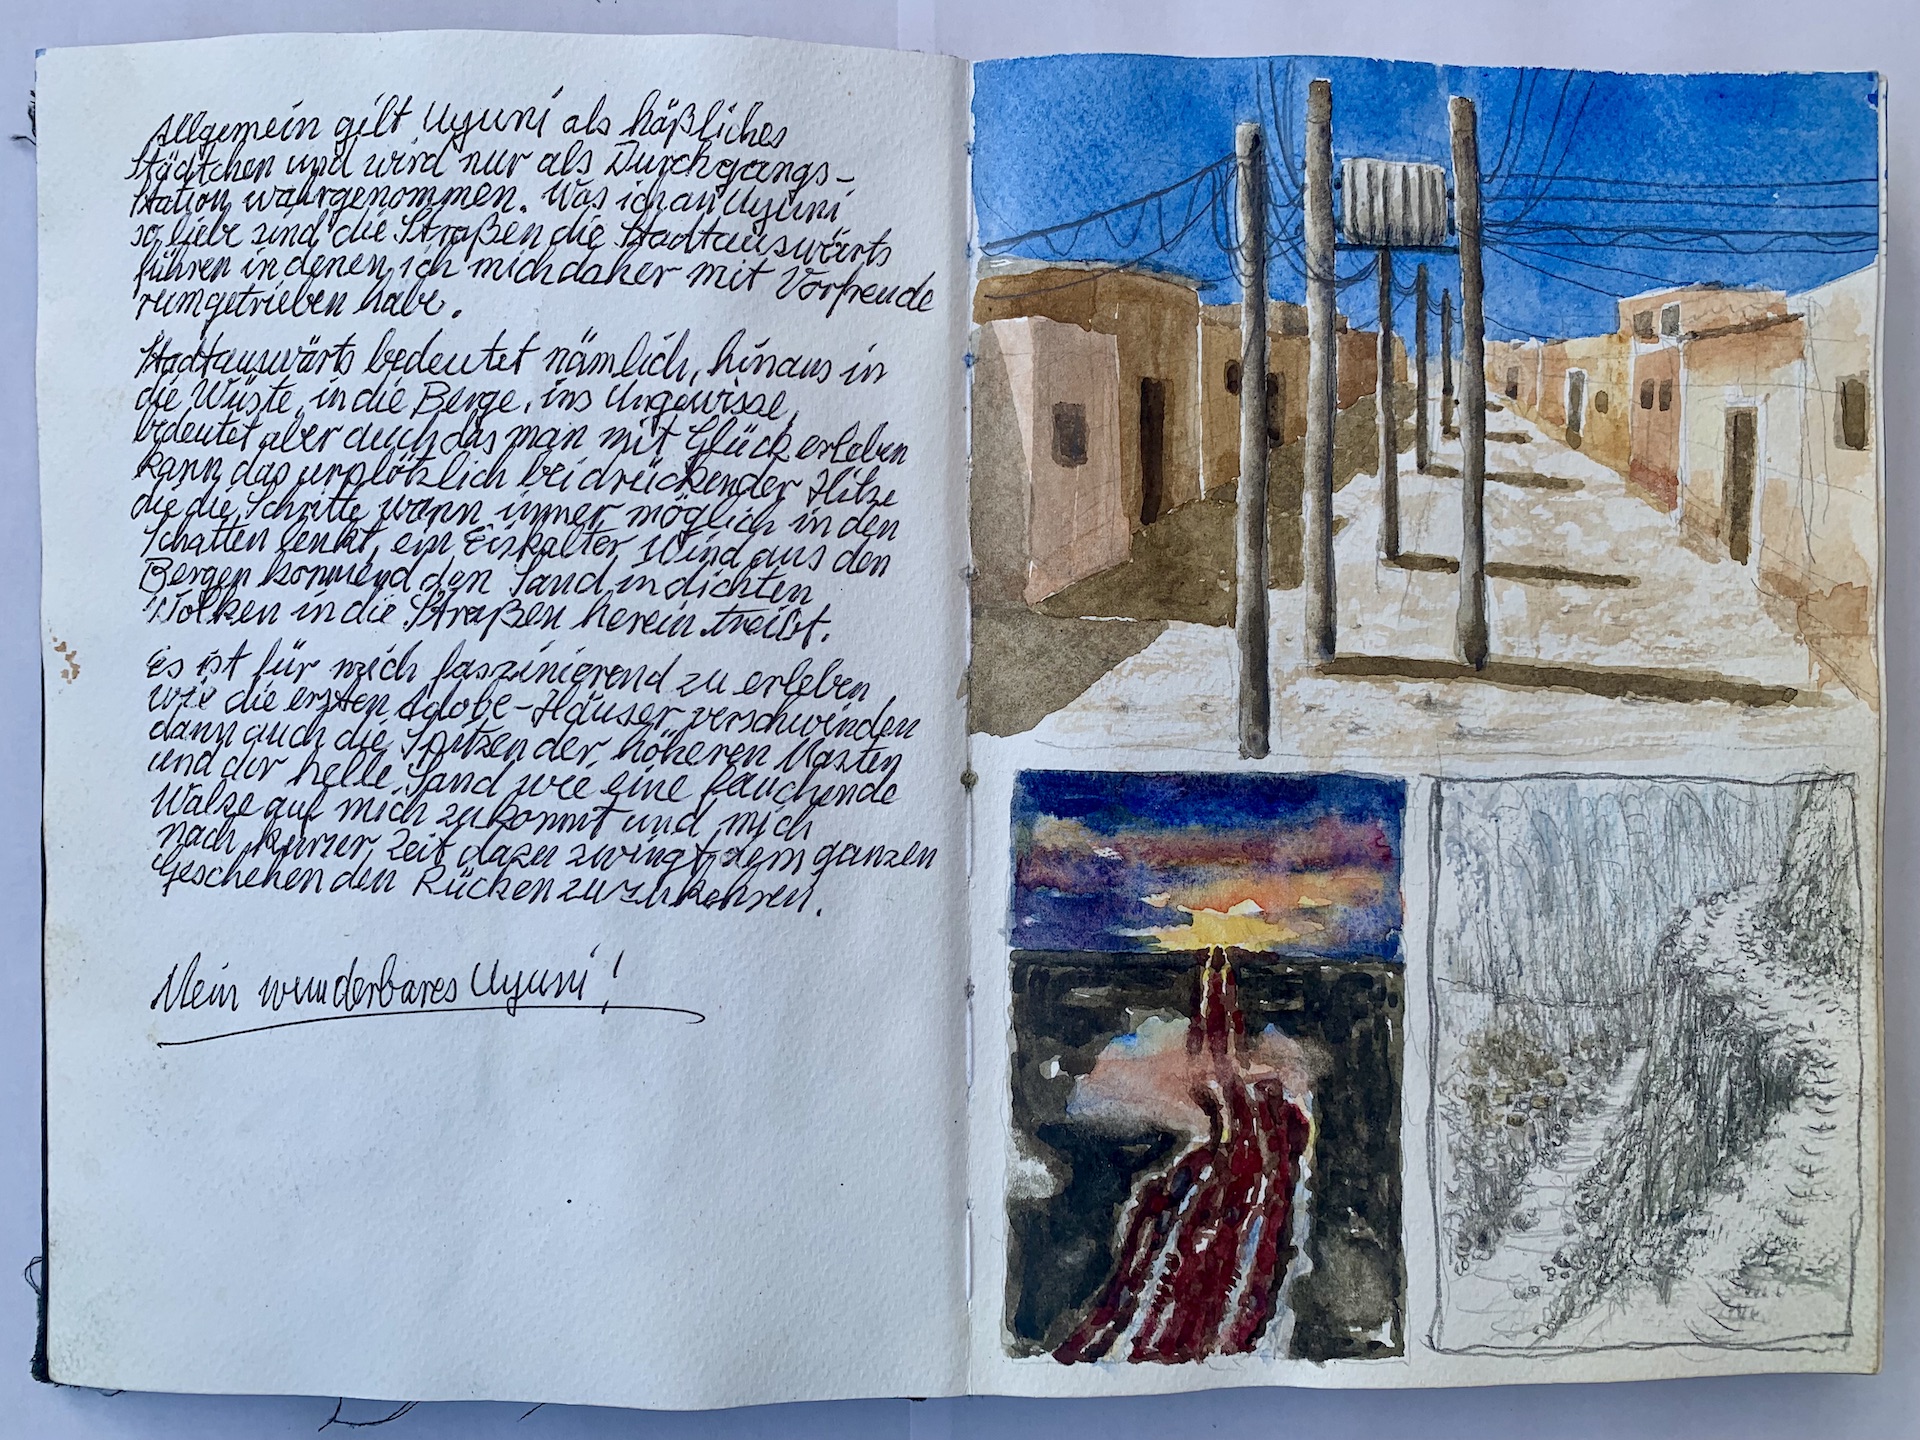 Allgemein gilt Uyuni als häßliches
Städtchen und wird nur als Durchgangs-
station wahrgenommen. Was ich an Uyuni
so liebe sind die Straßen die Stadtauswärts
führen in denen ich mich daher mit Vorfreude
rumgetrieben habe.
Stadtauswärts bedeutet nämlich, hinaus in
die Wüste, in die Berge, ins Ungewisse,
bedeutet aber auch das man mit Glück erleben
kann das urplötzlich bei drückender Hitze
die die Schritte wann immer möglich in den
Schatten lenkt, ein Eiskalter Wind aus den
Bergen kommend den Sand in dichten
Wolken in die Straßen herein treibt.
Es ist für mich faszinierend zu erleben
wie die ersten Adobe-Häuser verschwinden
dann auch die Spitzen der höheren Masten
und der helle Sand wie eine fauchende
Walze auf mich zu kommt und mich
nach kurzer Zeit dazu zwingt dem ganzen
Geschehen den Rücken zuzukehren.
Mein wunderbares Uyuni!